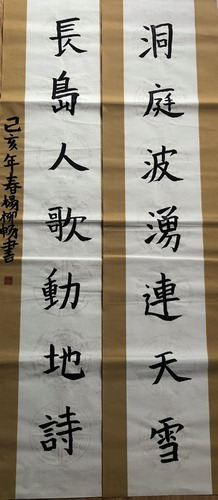 洞庭波湧連天雪
長島人歌動地詩
己亥年春楊柳暢書